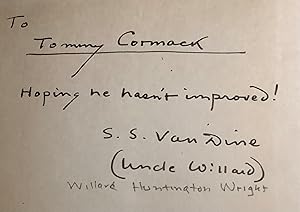 To
Tommy Cormack
Hoping he hasn't improved!
S. S. Van Dine
(Uncle Willard)
Willard Huntington Wright